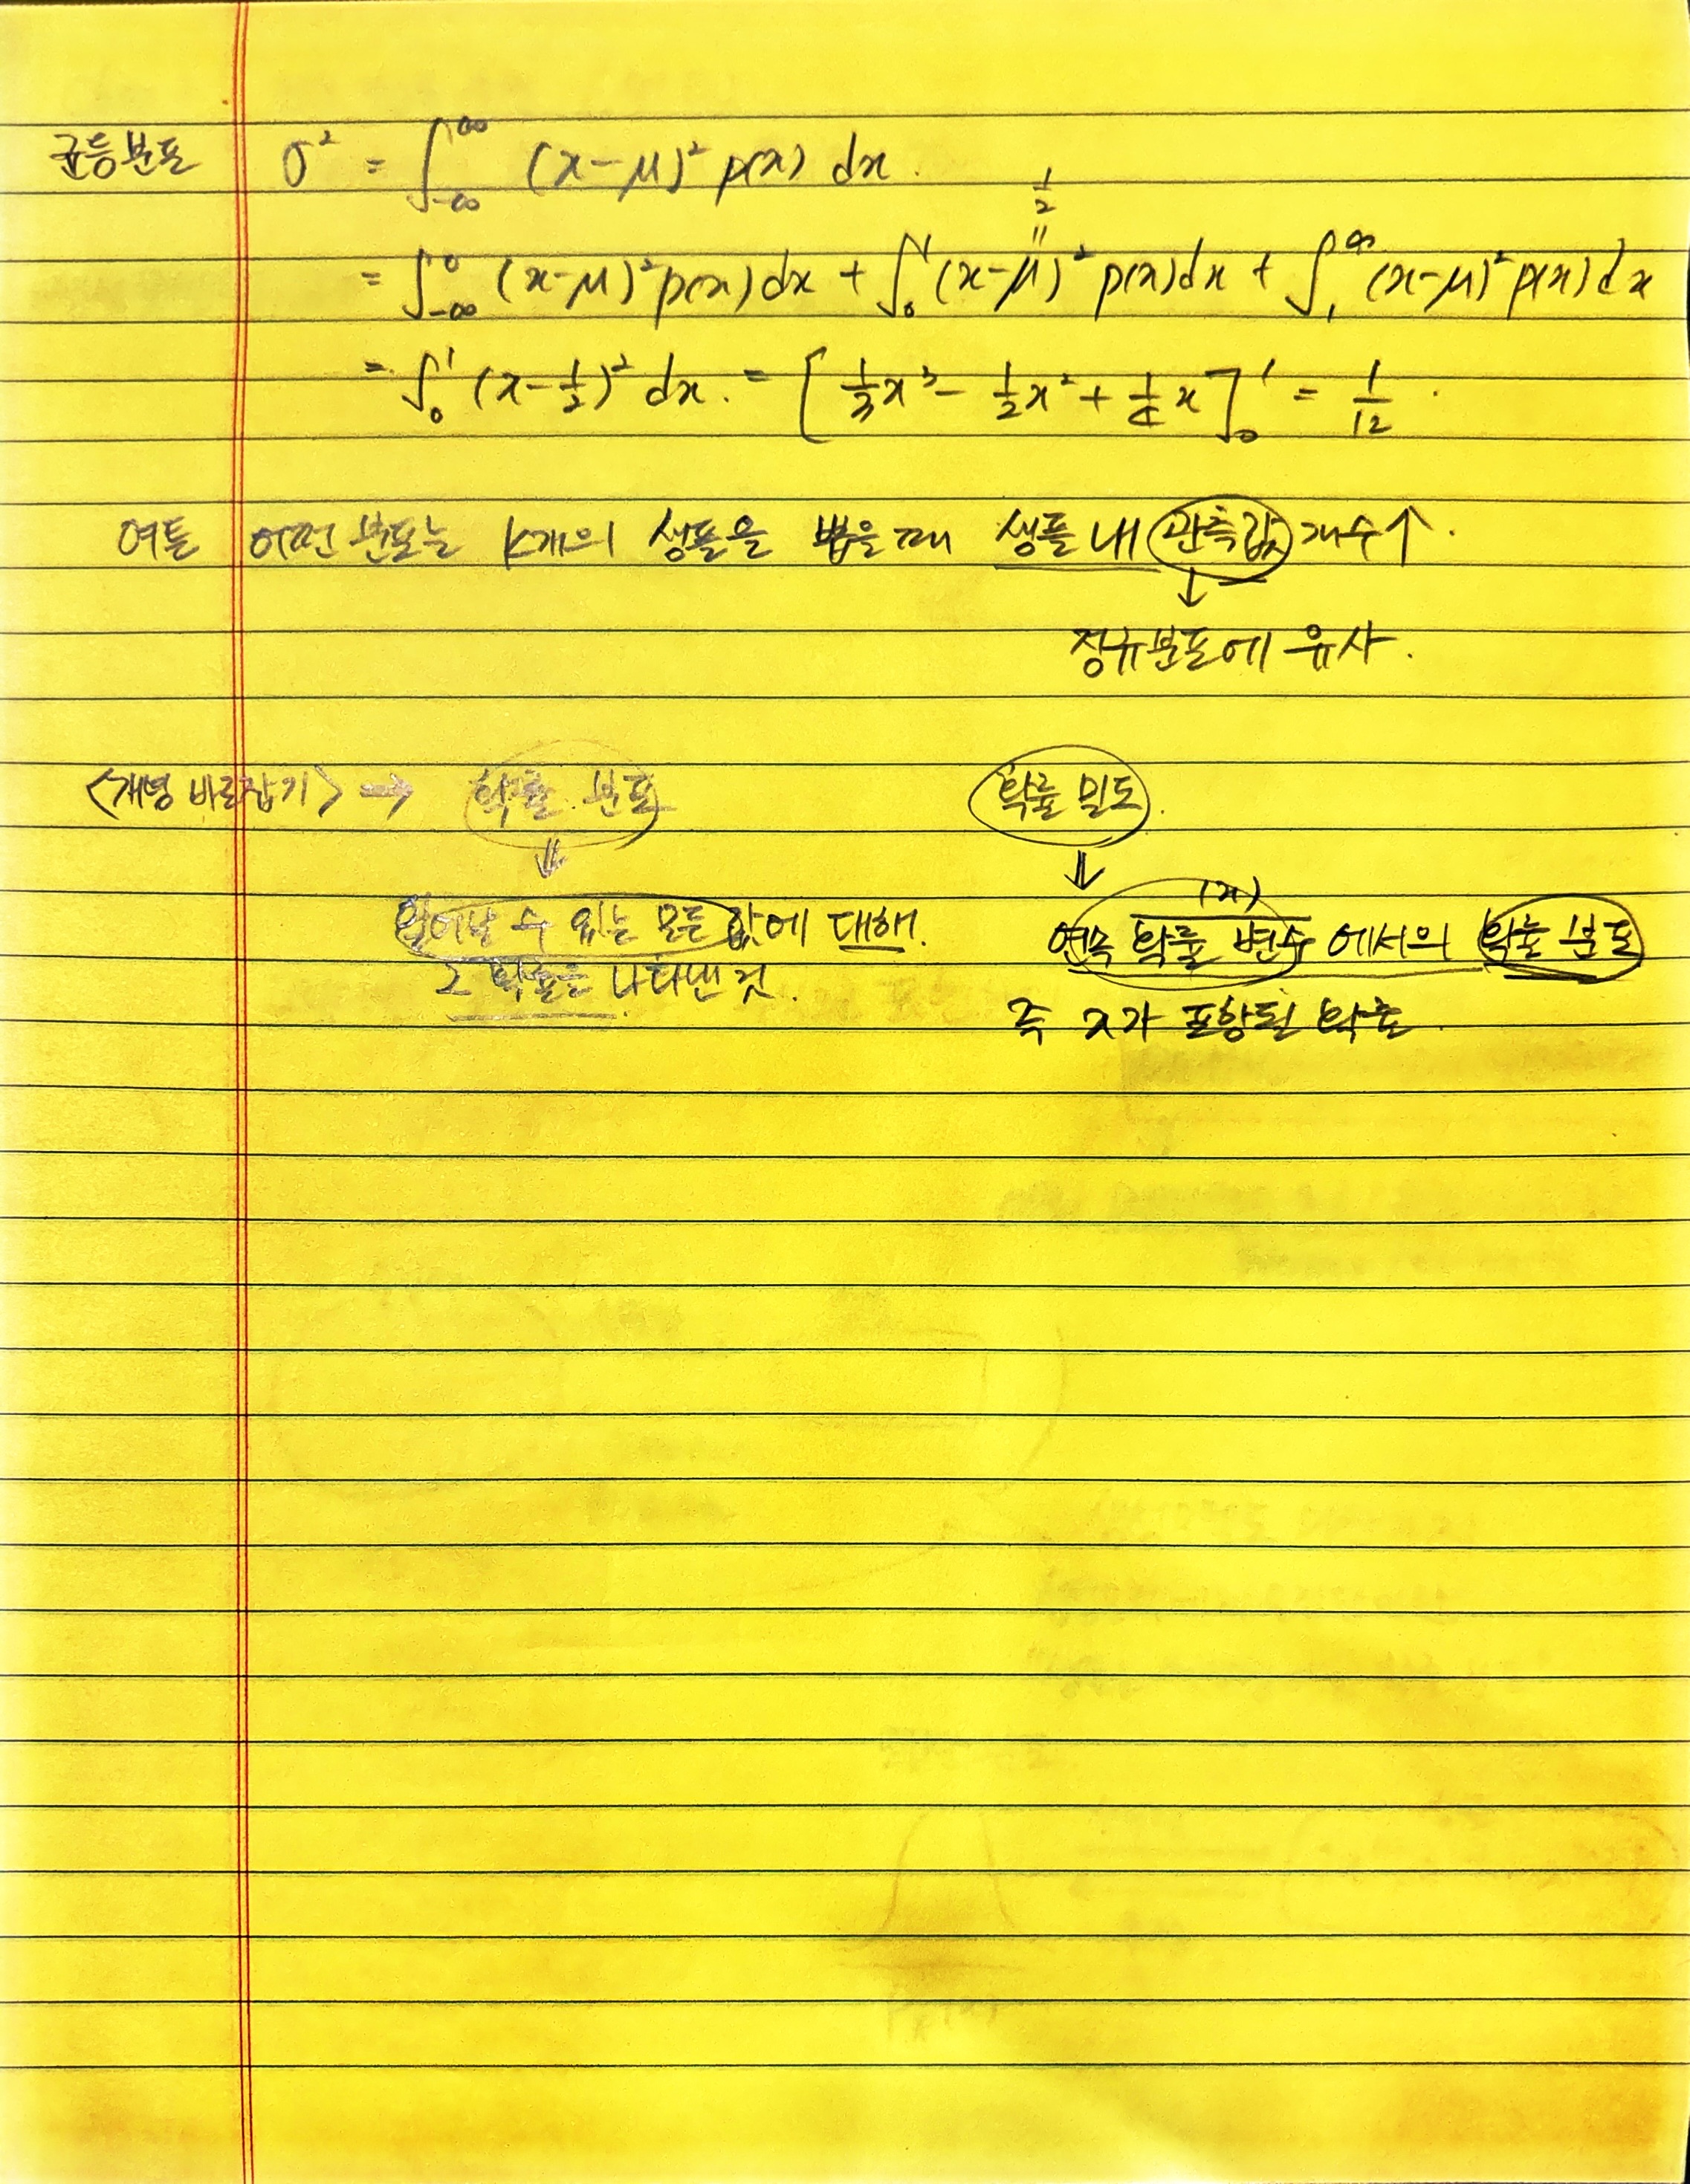 균등분포 σ² = ∫_{-∞}^{∞} (x-μ)² p(x) dx.
= ∫_{-∞}^{0} (x-μ)² p(x) dx + ∫_{0}^{1} (x-μ)² p(x) dx + ∫_{1}^{∞} (x-μ)² p(x) dx
½ = μ
= ∫_{0}^{1} (x-½)² dx. = [⅓x³ - ½x² + ¼x]_{0}^{1} = 1/12.
여튼 어떤 분포든 k개의 샘플을 뽑을 때 샘플 내 관측값 개수↑.
↓
정규분포에 유사.
<개념 바로잡기> → 확률 분포 확률 밀도.
⇓ ⇓
일어날 수 있는 모든 값에 대해.
그 확률을 나타낸 것.
(x)
연속 확률 변수 에서의 확률 분포
즉 x가 포함될 확률.